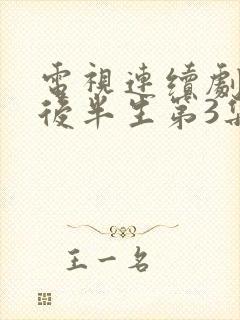 電視連續劇
後半生第3集
王一名